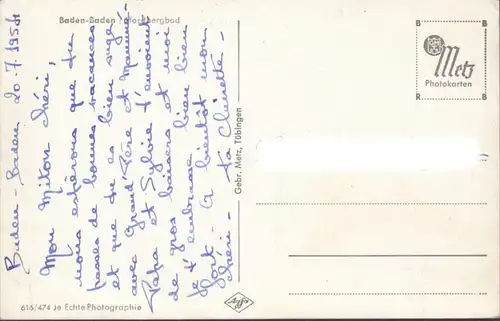 Baden-Baden
B B
Metz
Photokarten
B R
Baden-Baden 20.7.1954
Mon Miton chéri,
nous espérons que tu
passes de bonnes vacances
et que tu es bien sage
avec Grand'Père et
Papa et Sylvie t'envoient
de gros baisers et moi
je t'embrasse bien bien
fort - A bientôt mon
chéri - Ta
Gebr. Metz, Tübingen
616/474 Je Echte Photographie
Agfa